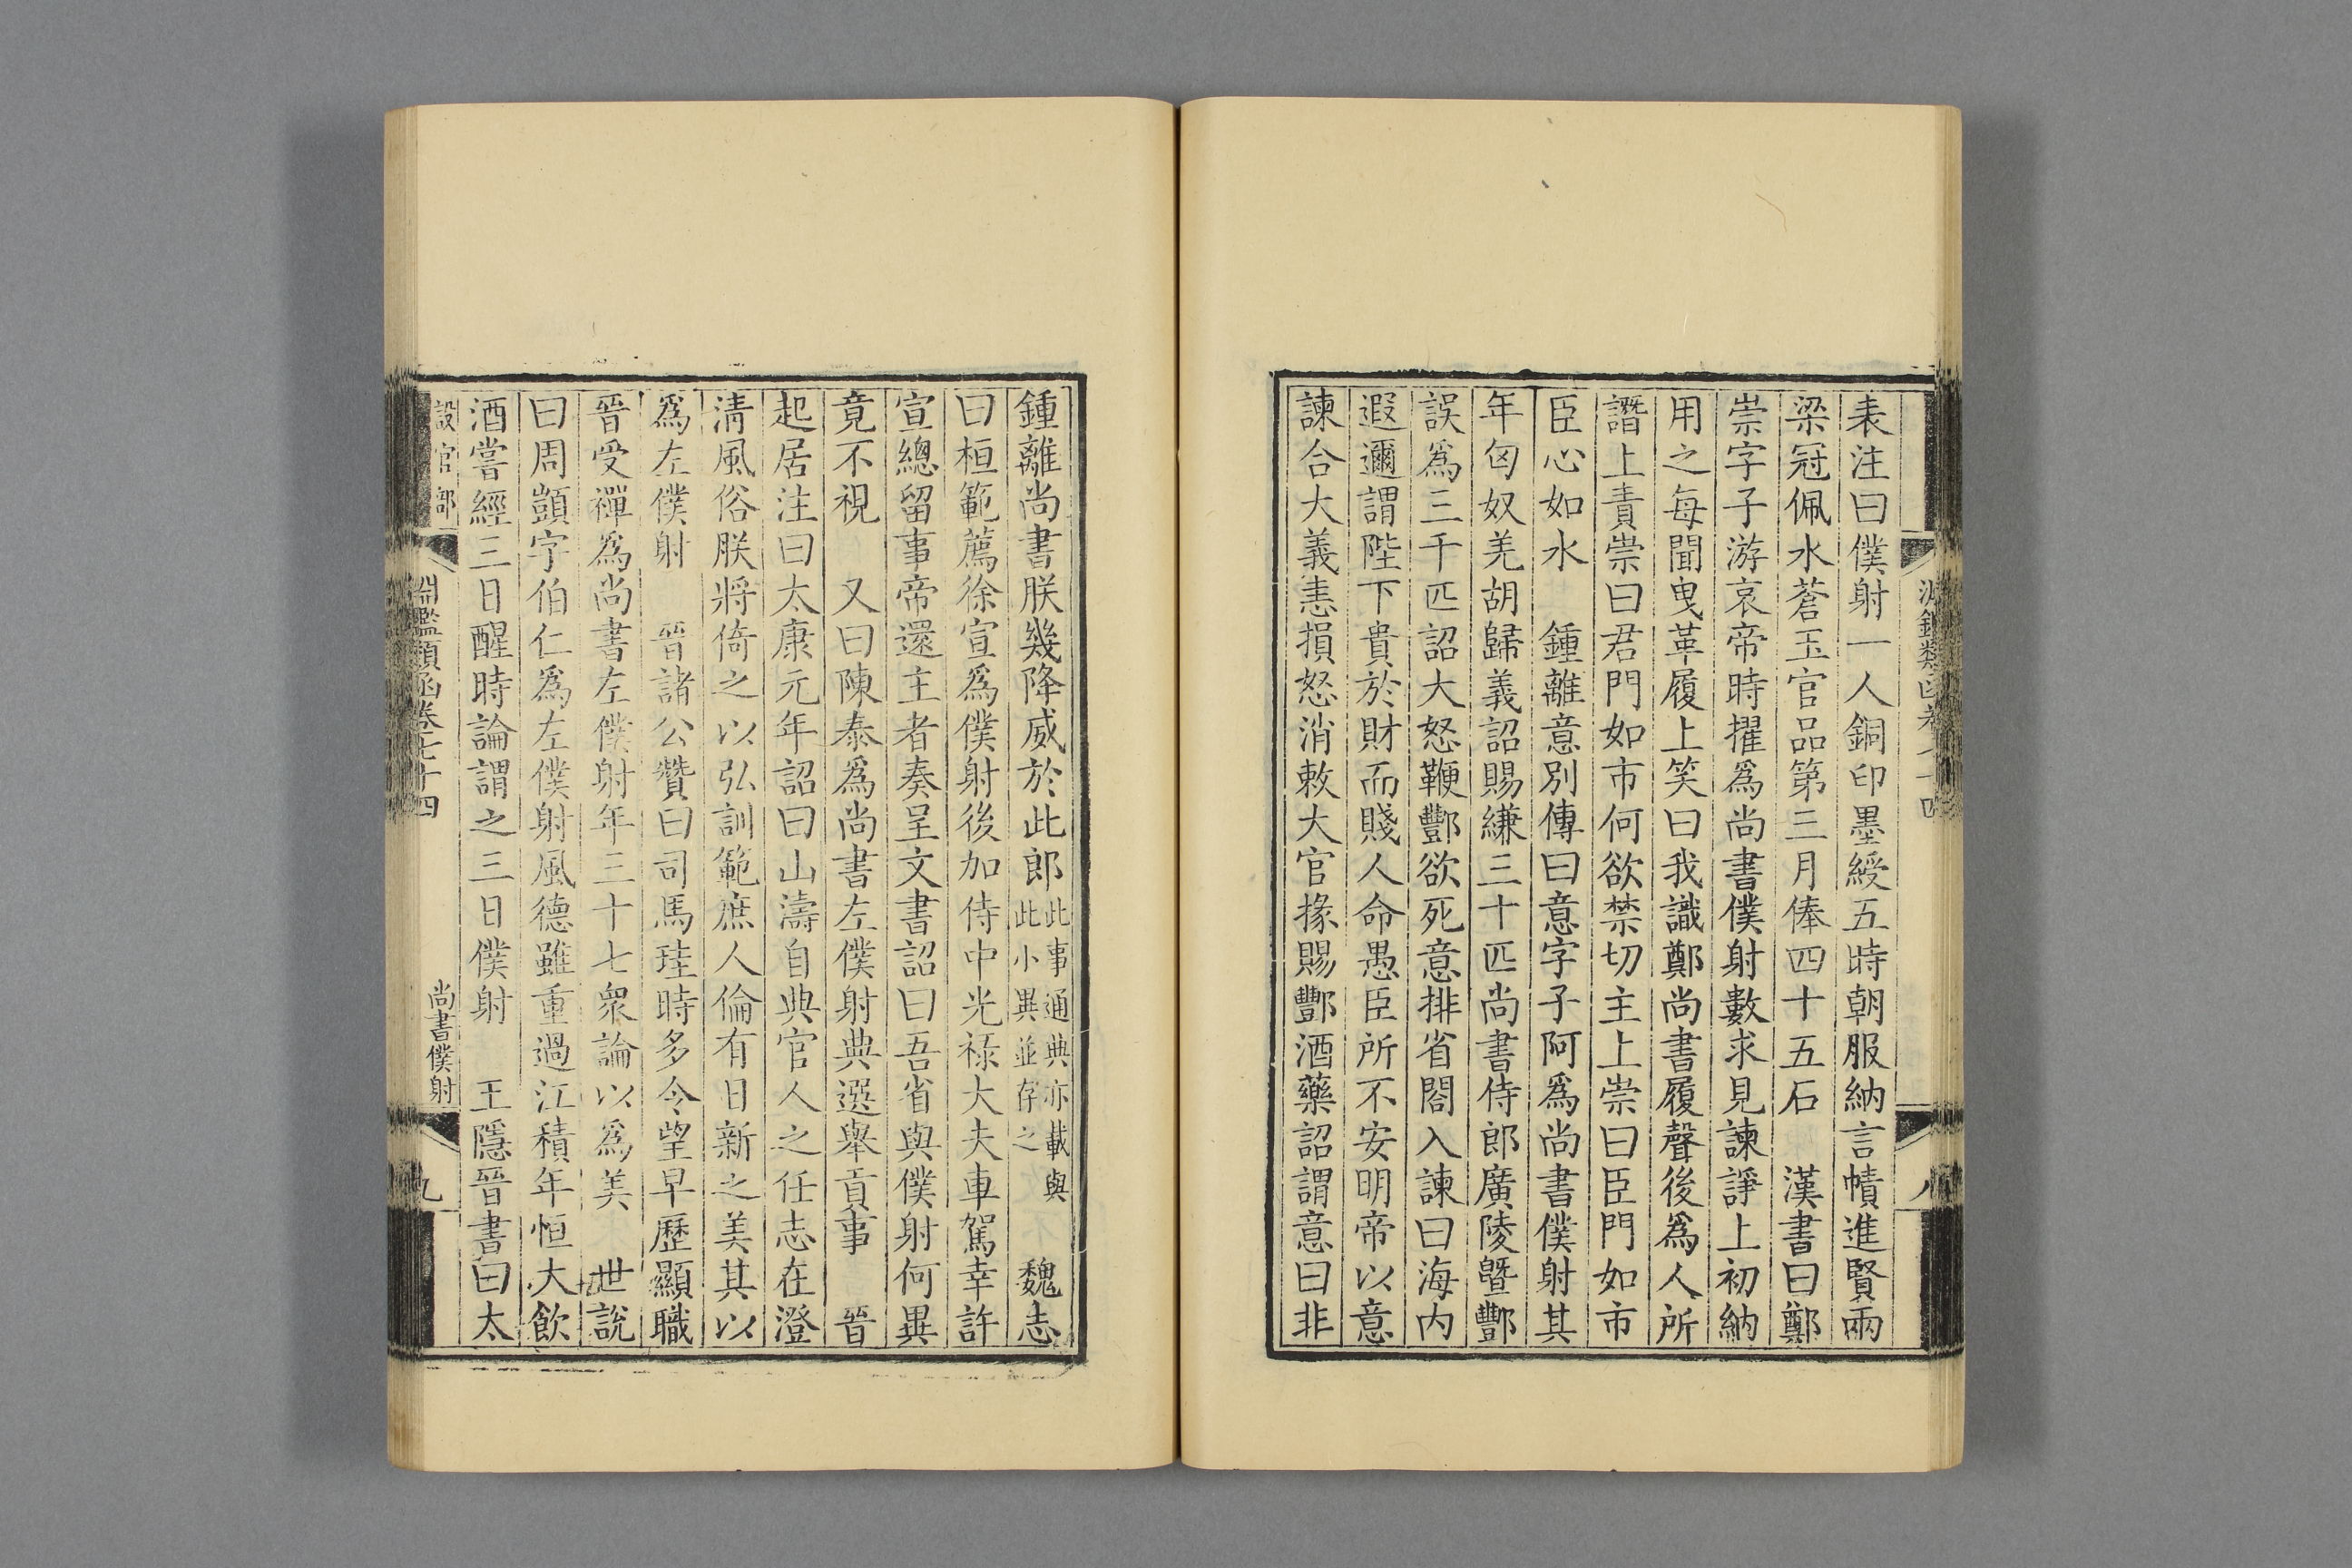 表注曰僕射一人銅印墨綬五時朝服納言幘進賢兩
梁冠佩水蒼玉官品第三月俸四十五石　漢書曰鄭
崇字子游哀帝時擢爲尚書僕射數求見諫諍上初納
用之每聞曳革履上笑曰我識鄭尚書履聲後爲人所
譖上責崇曰君門如市何欲禁切主上崇曰臣門如市
臣心如水　鍾離意別傳曰意字子阿爲尚書僕射其
年匈奴羌胡歸義詔賜縑三十匹尚書侍郎廣陵曁酆
誤爲三千匹詔大怒鞭酆欲死意排省閤入諫曰海内
遐邇謂陛下貴於財而賤人命愚臣所不安明帝以意
諫合大義恚損怒消敕大官掾賜酆酒藥詔謂意曰非
鍾離尚書朕幾降威於此郎此事通典亦載與此小異並存之　魏志
曰桓範薦徐宣爲僕射後加侍中光祿大夫車駕幸許
宣總留事帝還主者奏呈文書詔曰吾省與僕射何異
竟不視　又曰陳泰爲尚書左僕射典選舉貢事　晉
起居注曰太康元年詔曰山濤自典官人之任志在澄
清風俗朕將倚之以弘訓範庶人倫有日新之美其以
爲左僕射　晉諸公贊曰司馬珪時多令望早歷顯職
晉受禪爲尚書左僕射年三十七衆論以爲美　世說
曰周顗字伯仁爲左僕射風德雖重過江積年恒大飲
酒嘗經三日醒時論謂之三日僕射　王隱晉書曰太
設官部　淵鑑類函卷七十四　尚書僕射　九